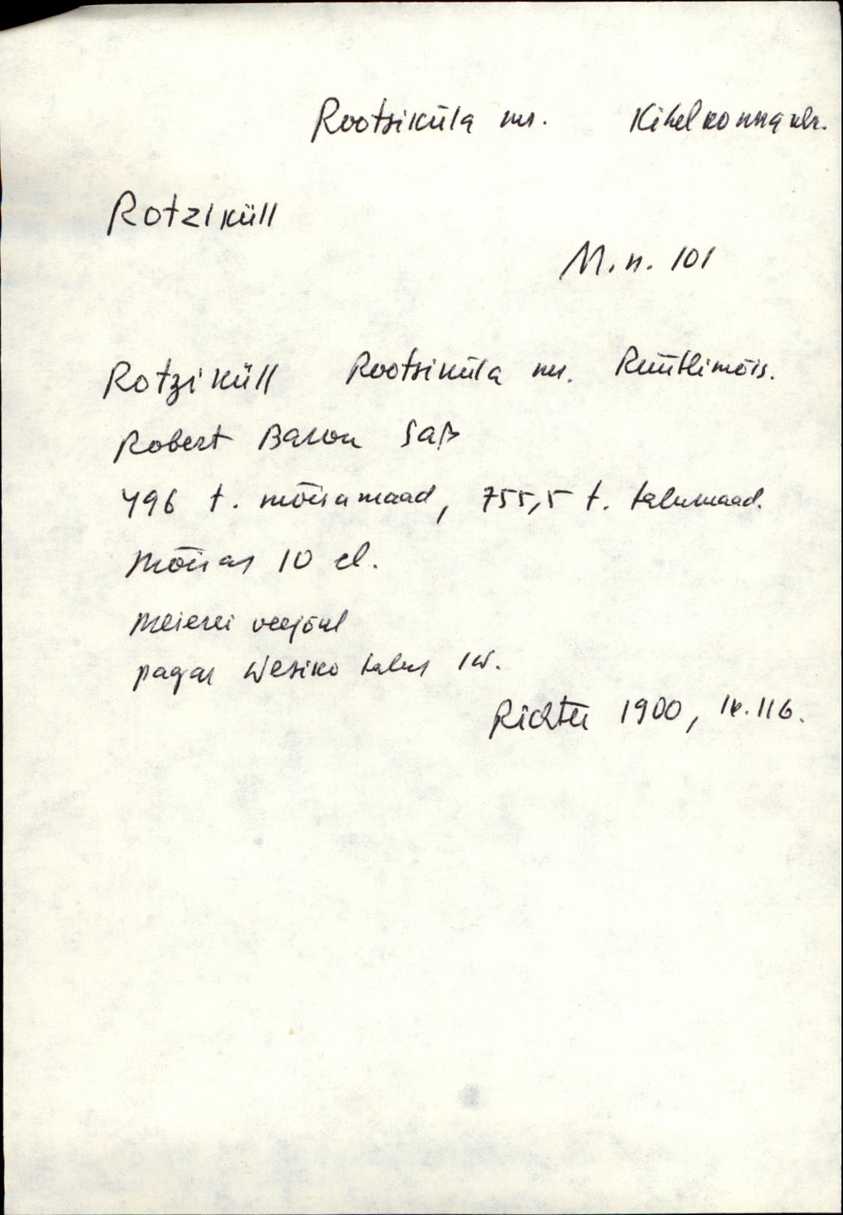 Rootsiküla mr. Kihelkonna khr.
Rotziküll
M.n. 101
Rotziküll Rootsiküla mr. Rüütlimõis.
Robert Baron Saß
496 t. mõisamaad, 755,5 t. talumaad.
Mõisas 10 el.
Meierei veejõul
pagar Wesiko talus
Richter 1900, lk. 116.